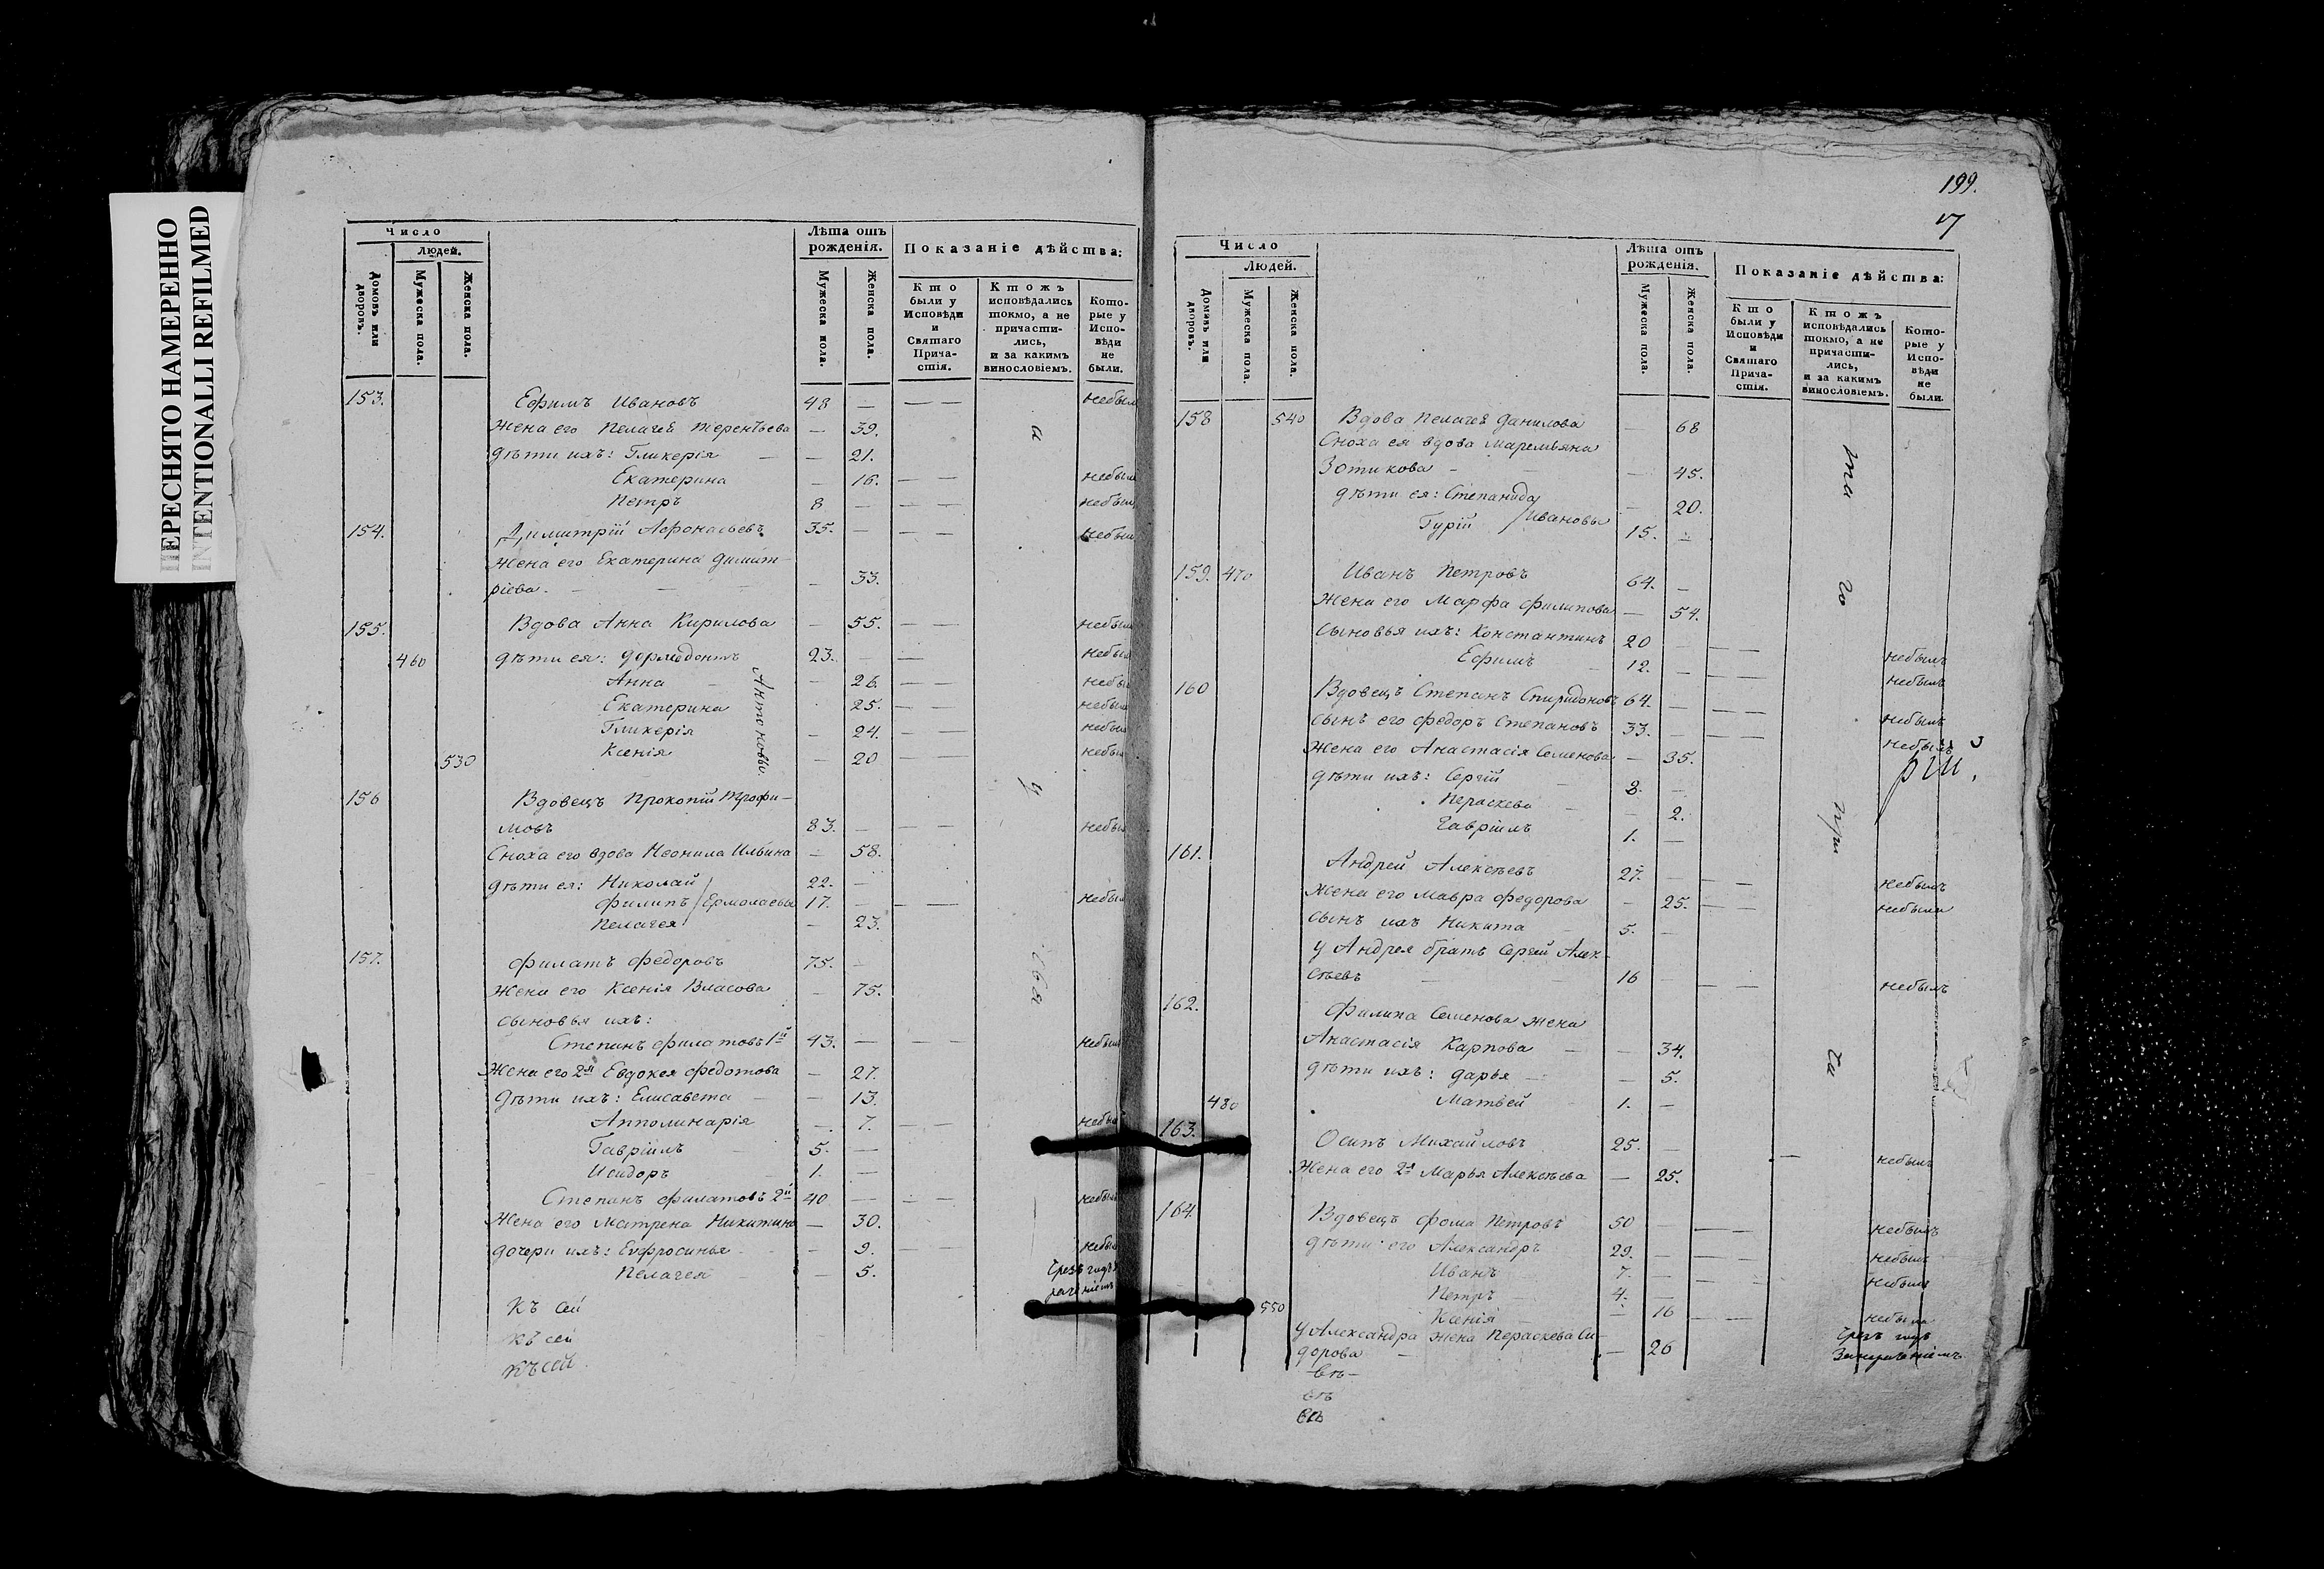 ПЕРЕСНЯТО НАМЕРЕННО
INTENTIONALLI REFILMED
Число
Людей.
Домовъ или дворовъ.
Мужеска пола.
Женска пола.
Лѣта отъ рожденія.
Мужеска пола.
Женска пола.
Показаніе дѣйства:
Кто были у Исповѣди и Святаго Причастія.
Ктожъ исповѣдались токмо, а не причастились, и за какимъ винословіемъ.
Которые у Исповѣди не были.
153. Ефимъ Ивановъ 48 — — — небыл
Жена его Пелагея Терентьева — 39.
дѣти ихъ: Гликерія — — 21.
Екатерина — 16. — — небыла
Петръ 8 — — — небылъ
154. Димитрій Афонасьевъ 35. — — — небылъ
Жена его Екатерина Димит-
ріева — — — 33.
155. Вдова Анна Кирилова — 55. — — небыла
460 дѣти ея: Дормедонтъ 23. — — небыл
Анна — — 26. — — небы
Екатерина 25. — — небыла
Гликерія — 24. — — небыла
530 Ксенія — 20 — — небыл
Антоновы
156 Вдовецъ Прокопій Трофи-
мовъ 83. — — — небыл
Сноха его вдова Неонила Ильина — 58.
дѣти ея: Николай 22. —
Филипъ Ермолаевы 17. — — — небыл
Пелагея — 23.
157. Филатъ Федоровъ 75. —
Жена его Ксенія Власова — 75.
сыновья ихъ:
Степанъ Филатовъ 1й 43. — — — небылъ
Жена его 2я Евдокея Федотова — 27.
Дѣти ихъ: Елисавета — — 13.
Апполинарія — 7. — — небы
Гавріилъ 5. —
Исидоръ 1. —
Степанъ Филатовъ 2й 40 — — — небылъ
Жена его Матрена Никитина — 30.
дочери ихъ: Евфросинья — — 9. — — небыл
Пелагея — — 5.
Къ сей
къ сей
къ сей
199.
17
Число
Людей.
Домовъ или дворовъ.
Мужеска пола.
Женска пола.
Лѣта отъ рожденія.
Мужеска пола.
Женска пола.
Показаніе дѣйства:
Кто были у Исповѣди и Святаго Причастія.
Ктожъ исповѣдались токмо, а не причастились, и за какимъ винословіемъ.
Которые у Исповѣди не были.
158 540 Вдова Пелагея Данилова — 68
Сноха ея вдова Маремьяна
Зотикова — — 45.
дѣти ея: Степанида — 20.
Гурій Ивановы 15. —
159. 470 Иванъ Петровъ 64. —
Жена его Марфа Филипова — 54.
сыновья ихъ: Константинъ 20 — — — небылъ
Ефимъ 12. — — — небылъ
160 Вдовецъ Степанъ Спиридоновъ 64. — — — небылъ
сынъ его Федоръ Степановъ 33. — — — небылъ
Жена его Анастасія Семенова — 35.
дѣти ихъ: Сергій 8. —
Пераскева — — 2.
Гавріилъ 1. —
161. Андрей Алексѣевъ 27. — — — небылъ
Жена его Мавра Федорова — 25. — — небыла
сынъ ихъ Никита 5. —
у Андрея братъ Сергей Алек-
сѣевъ 16 — — — небылъ
162. Филипа Семенова жена
Анастасія Карпова — — 34.
дѣти ихъ: Дарья — — 5.
480 Матвей 1. —
163. Осипъ Михайловъ 25. — — небылъ
Жена его 2я Марья Алексѣева — 25.
164. Вдовецъ Фома Петровъ 50 — — — небылъ
дѣти его Александръ 29. — — — небылъ
Иванъ 7. — — — небылъ
Петръ 4. —
550 Ксенія — 16 — — небыла
у Александра жена Пераскева Си-
дорова — — 26